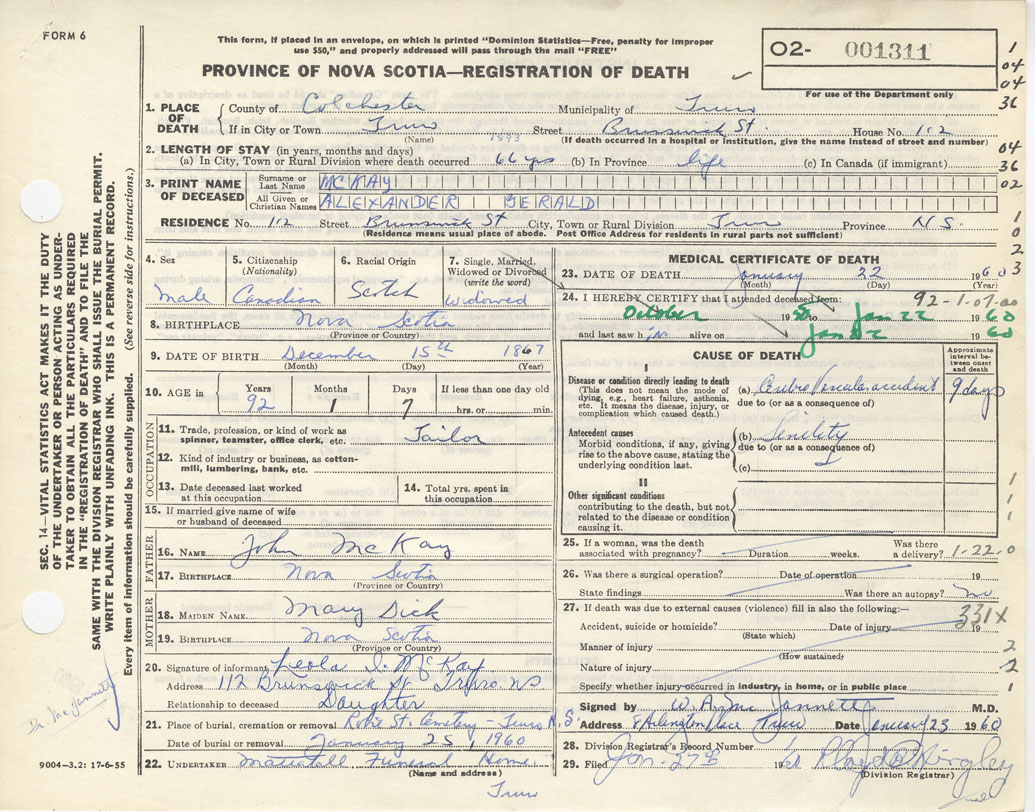 FORM 6
This form, if placed in an envelope, on which is printed "Dominion Statistics—Free, penalty for improper
use $50," and properly addressed will pass through the mail "FREE"
PROVINCE OF NOVA SCOTIA—REGISTRATION OF DEATH
O2- 001311
For use of the Department only
1
04
04
36
04
36
02
1
0
2
3
1. PLACE OF DEATH
County of Colchester Municipality of Truro
If in City or Town Truro Street Brunswick St. House No. 112
(Name) 7593 (If death occurred in a hospital or institution, give the name instead of street and number)
2. LENGTH OF STAY (in years, months and days)
(a) In City, Town or Rural Division where death occurred 66 yrs (b) In Province life (c) In Canada (if immigrant)
3. PRINT NAME OF DECEASED
Surname or Last Name MCKAY
All Given or Christian Names ALEXANDER GERALD
RESIDENCE No. 112 Street Brunswick St City, Town or Rural Division Truro Province N.S.
(Residence means usual place of abode. Post Office Address for residents in rural parts not sufficient)
4. Sex
male
5. Citizenship
(Nationality)
Canadian
6. Racial Origin
Scotch
7. Single, Married,
Widowed or Divorced
(write the word)
Widowed
8. BIRTHPLACE Nova Scotia
(Province or Country)
9. DATE OF BIRTH December 15th 1867
(Month) (Day) (Year)
10. AGE in
Years Months Days If less than one day old
92 1 7 hrs. or min.
OCCUPATION
11. Trade, profession, or kind of work as
spinner, teamster, office clerk, etc. Tailor
12. Kind of industry or business, as cotton-
mill, lumbering, bank, etc.
13. Date deceased last worked
at this occupation
14. Total yrs. spent in
this occupation
15. If married give name of wife
or husband of deceased
FATHER
16. NAME John McKay
17. BIRTHPLACE Nova Scotia
(Province or Country)
MOTHER
18. MAIDEN NAME Mary Dick
19. BIRTHPLACE Nova Scotia
(Province or Country)
20. Signature of informant Leola I. McKay
Address 112 Brunswick St Truro NS
Relationship to deceased Daughter
21. Place of burial, cremation or removal Robie St. Cemetery - Truro N.S
Date of burial or removal January 25, 1960
22. UNDERTAKER Mattatall Funeral Home,
(Name and address)
Truro
MEDICAL CERTIFICATE OF DEATH
23. DATE OF DEATH January 22 1960
(Month) (Day) (Year)
24. I HEREBY CERTIFY that I attended deceased from: 92-1-07-00
October 19 to Jan 22 1960
and last saw him alive on Jan 22 1960
CAUSE OF DEATH
Approximate
interval be-
tween onset
and death
I
Disease or condition directly leading to death
(This does not mean the mode of
dying, e.g., heart failure, asthenia,
etc. It means the disease, injury, or
complication which caused death.)
(a) Cerebro Vascular accident 9 days
due to (or as a consequence of)
Antecedent causes
Morbid conditions, if any, giving
rise to the above cause, stating the
underlying condition last.
(b) Senility
due to (or as a consequence of)
(c)
II
Other significant conditions
contributing to the death, but not
related to the disease or condition
causing it.
1
1
1
25. If a woman, was the death
associated with pregnancy? Duration weeks. Was there
a delivery? 1-22-0
26. Was there a surgical operation? Date of operation 19
State findings Was there an autopsy? no
27. If death was due to external causes (violence) fill in also the following:—
331X
Accident, suicide or homicide? Date of injury 19
(State which)
Manner of injury 2
(How sustained)
Nature of injury 2
Specify whether injury occurred in industry, in home, or in public place 1
Signed by W. A. MacJannett M.D.
Address 8 Arlington Place Truro Date January 23 1960
28. Division Registrar's Record Number
29. Filed Jan. 27th 1960
(Division Registrar)
SEC. 14—VITAL STATISTICS ACT MAKES IT THE DUTY
OF THE UNDERTAKER OR PERSON ACTING AS UNDER-
TAKER TO OBTAIN ALL THE PARTICULARS REQUIRED
IN THE "REGISTRATION OF DEATH" AND TO FILE THE
SAME WITH THE DIVISION REGISTRAR WHO SHALL ISSUE THE BURIAL PERMIT.
WRITE PLAINLY WITH UNFADING INK. THIS IS A PERMANENT RECORD.
Every item of information should be carefully supplied. (See reverse side for instructions.)
Dr. MacJannett
9004—3.2: 17-6-55